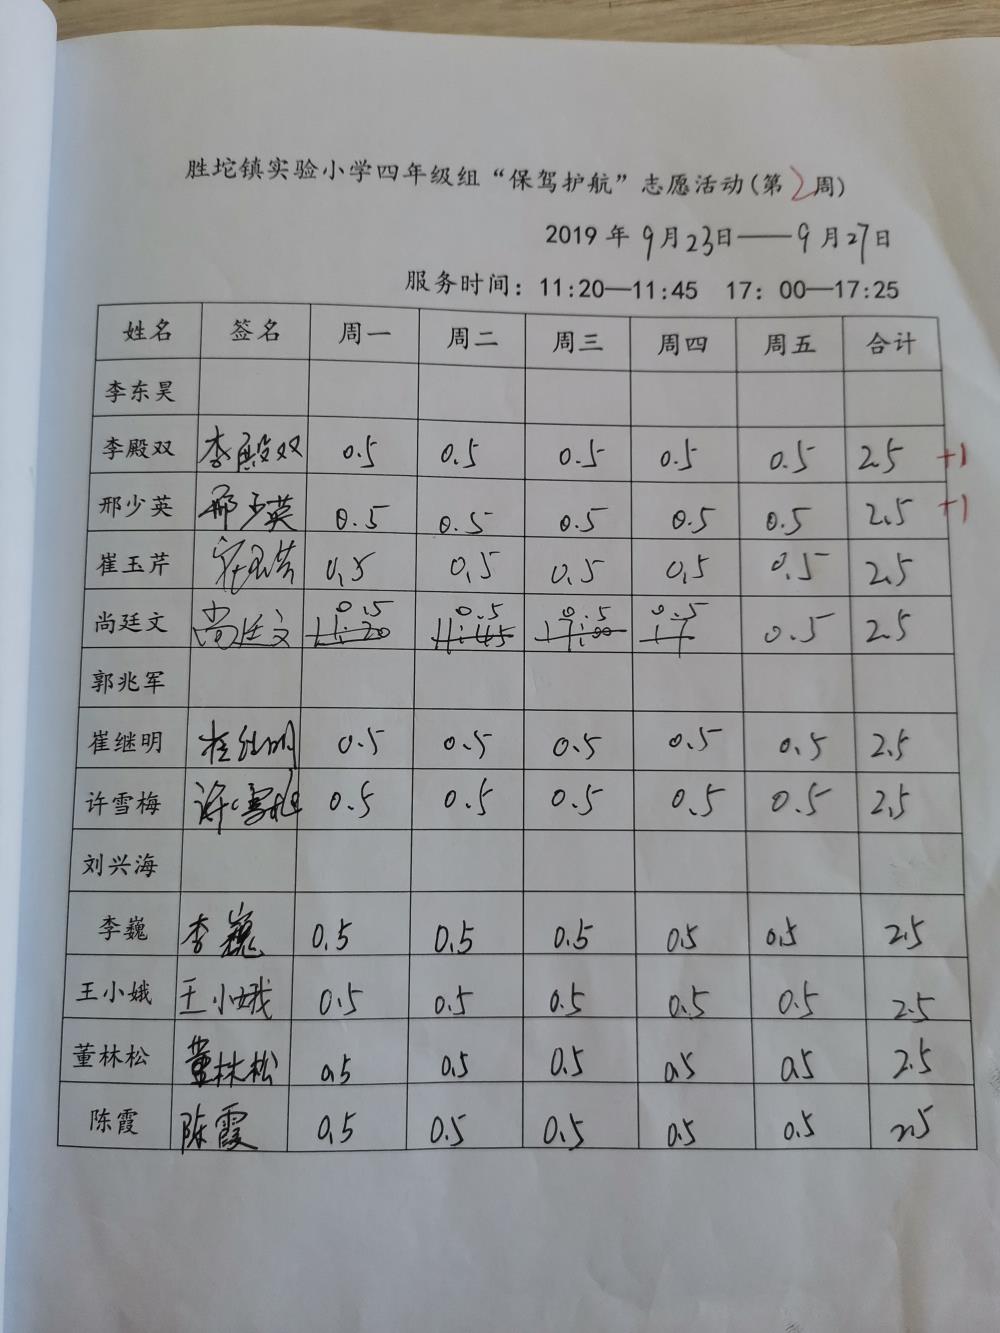 胜坨镇实验小学四年级组“保驾护航”志愿活动(第2周)
2019 年 9月23日——9月27日
服务时间：11:20—11:45 17：00—17:25
姓名 签名 周一 周二 周三 周四 周五 合计
李东昊
李殿双 李殿双 0.5 0.5 0.5 0.5 0.5 2.5 +1
邢少英 邢少英 0.5 0.5 0.5 0.5 0.5 2.5 +1
崔玉芹 崔玉芹 0.5 0.5 0.5 0.5 0.5 2.5
尚廷文 尚廷文 0.5 0.5 0.5 0.5 0.5 2.5
11:20 11:45 17:00 17
郭兆军
崔继明 崔继明 0.5 0.5 0.5 0.5 0.5 2.5
许雪梅 许雪梅 0.5 0.5 0.5 0.5 0.5 2.5
刘兴海
李巍 李巍 0.5 0.5 0.5 0.5 0.5 2.5
王小娥 王小娥 0.5 0.5 0.5 0.5 0.5 2.5
董林松 董林松 0.5 0.5 0.5 0.5 0.5 2.5
陈霞 陈霞 0.5 0.5 0.5 0.5 0.5 2.5